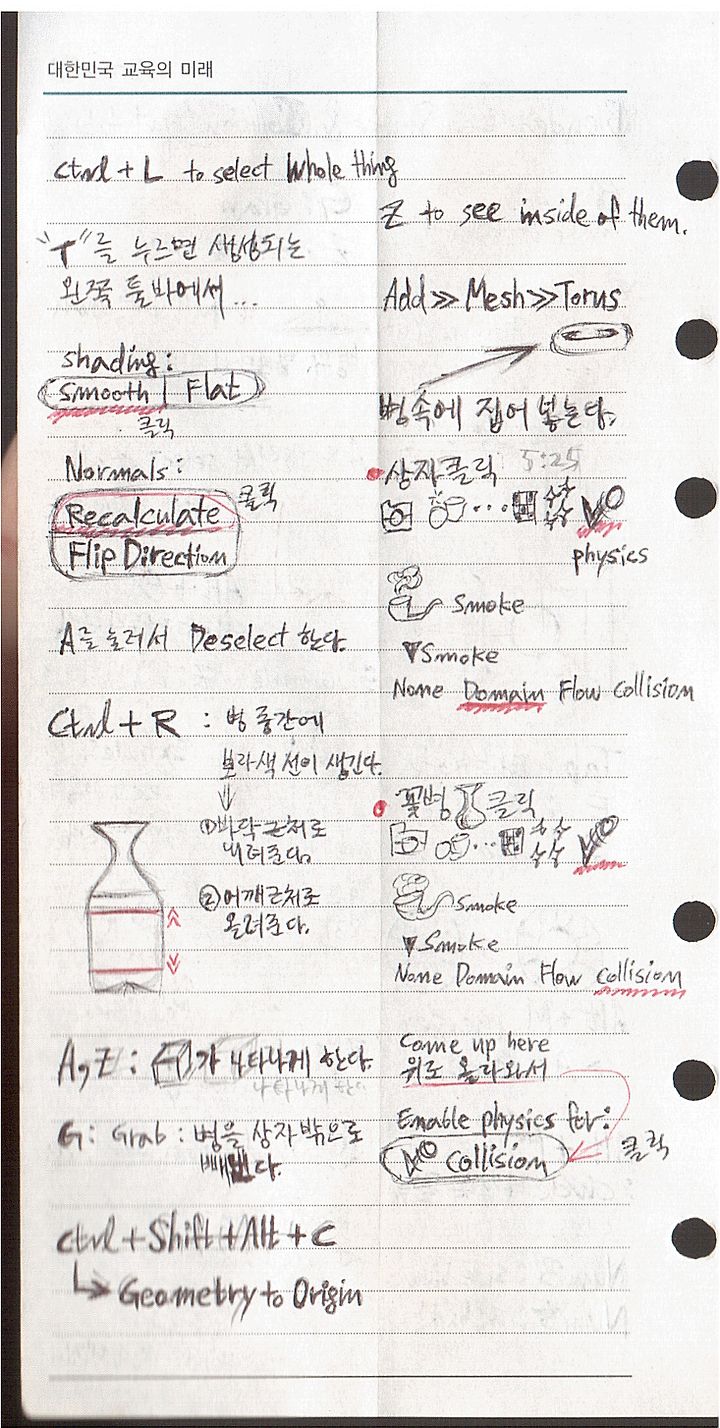 대한민국 교육의 미래
Ctrl + L to select Whole thing
"T"를 누르면 생성되는
왼쪽 툴바에서...
shading:
Smooth | Flat
클릭
Normals:
Recalculate 클릭
Flip Direction
A를 눌러서 Deselect 한다.
Ctrl + R : 병 중간에
보라색 선이 생긴다.
① 바닥 근처로
내려준다.
② 어깨근처로
올려준다.
A, Z : 가 나타나게 한다.
나타나게 한
G: Grab : 병을 상자 밖으로
빼낸다.
ctrl + Shift + Alt + C
Geometry to Origin
Z to see inside of them.
Add >> Mesh >> Torus
병속에 집어 넣는다.
상자클릭 5:25
...
physics
Smoke
▼Smoke
None Domain Flow Collision
꽃병 클릭
...
Smoke
▼Smoke
None Domain Flow Collision
Come up here
위로 올라와서
Enable physics for:
Collision 클릭